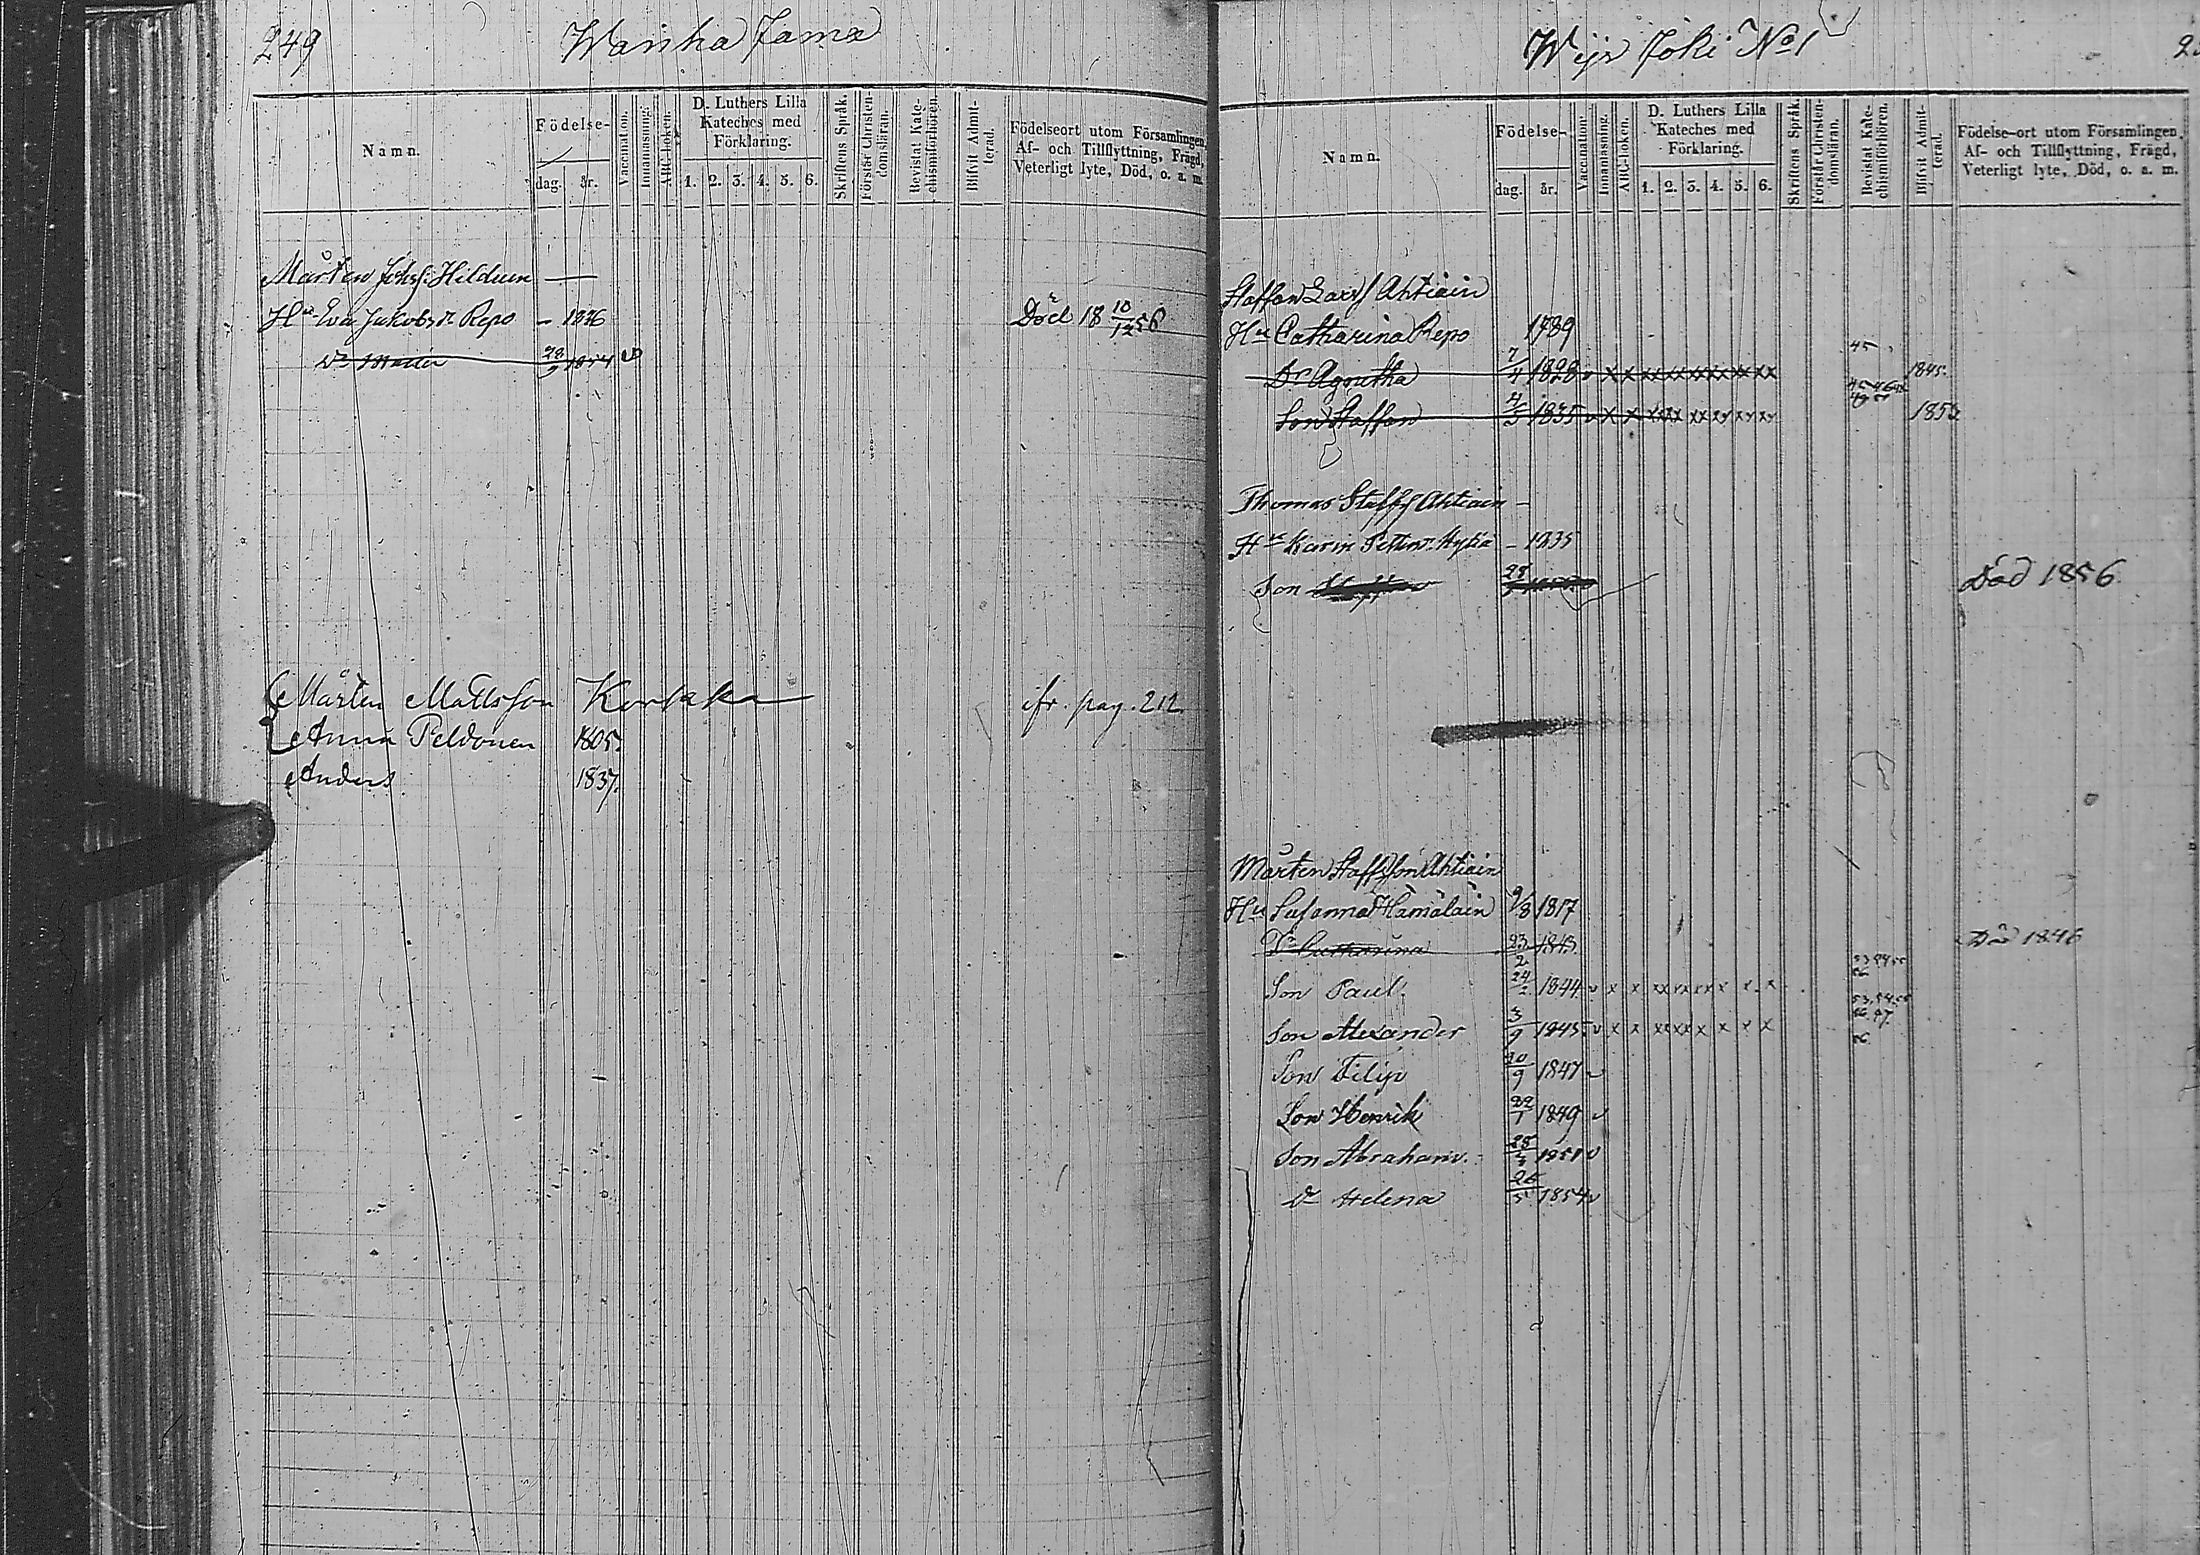 249
Wanha Jama
Namn.
Födelse-
dag.
år.
Vaccination.
Innanläsning.
ABC-boken.
D. Luthers Lilla
Kateches med
Förklaring.
1. 2. 3. 4. 5. 6.
Skriftens Språk.
Förstår Christen-
domsläran.
Bevistat Kate-
chismiförhören.
Blifvit Admit-
terad.
Födelseort utom Församlingen,
Af- och Tillflyttning, Frägd,
Veterligt lyte, Död, o. a. m.
Mårten Johsf:
Hu Eva Jakobsdr Repo - 1826 Död 18 10/12 56
Dr Maria 1854
Mårten Mattsson Korkka cfr. pag. 212
Anna Peldonen 1805.
Anders 1837.
Wijs Joki No 1
Namn.
Födelse-
dag.
år.
Vaccination.
Innanläsning.
ABC-boken.
D. Luthers Lilla
Kateches med
Förklaring.
1. 2. 3. 4. 5. 6.
Skriftens Språk.
Förstår Christen-
domsläran.
Bevistat Kate-
chismiförhören.
Blifvit Admit-
terad.
Födelse-ort utom Församlingen,
Af- och Tillflyttning, Frägd,
Veterligt lyte, Död, o. a. m.
Staffan Larss Ahtiain
Hu Catharina Repo 1789
Dr Agnetha 7/4 1828 v x x xx xx xx xx xx xx 45 1845.
Son Staffan 4/5 1835 v x x
Thomas Staffs Ahtiain -
Hu Karin - 1835
Son Död 1856
Mårten Staffsson Ahtiain
Hu Susanna Hämäläin 9/8 1817
Dr Catharina 1843. Död 1846
Son Paul. 24/2 1844 v x x
Son Alexander 3/9 1845. v x x
Son Filip 20/9 1847 v
Son Henrik 22/1 1849 v
Son Abraham. 1851 v
Dr Helena 26/5 1854 v